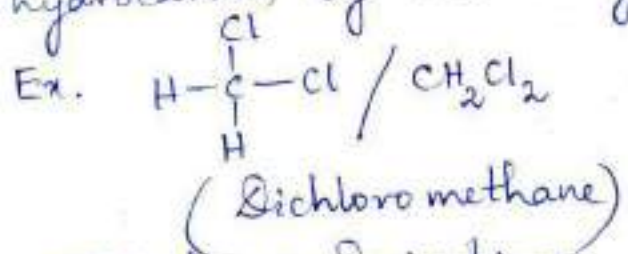 Cl
Ex. H-C-Cl / CH₂Cl₂
H
(Dichloromethane)